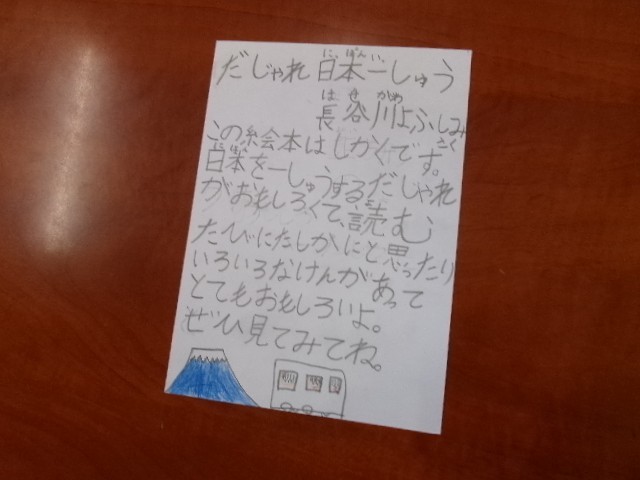 だじゃれ日本一しゅう
長谷川よふしみさく
この絵本はしかくです。
日本を一しゅうするだじゃれ
がおもしろくて、読む
たびにたしかにと思ったり
いろいろなけんがあって
とてもおもしろいよ。
ぜひ見てみてね。